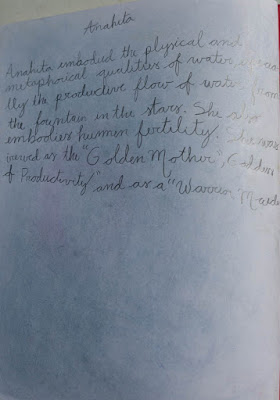 Anahita
Anahita embodied the physical and
metaphorical qualities of water,
lly the productive flow of water from
the fountain in the stars. She also
embodies human fertility. She was
as the "Golden Mother",
of Productivity" and as a "Warrior